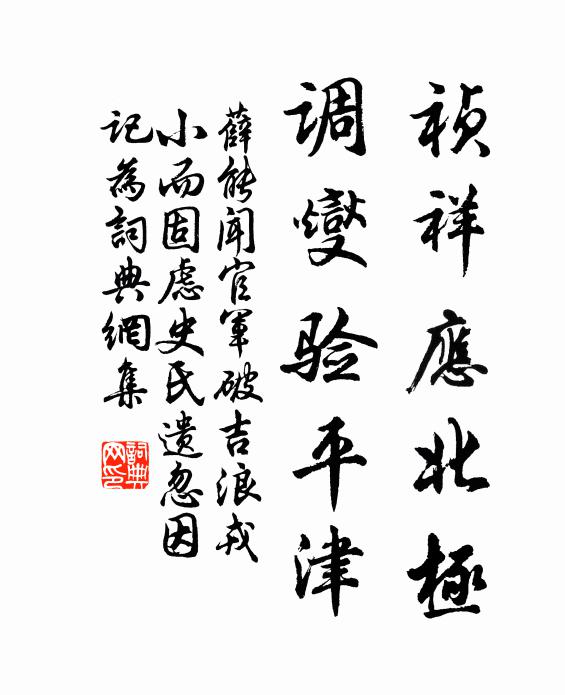 祯祥應北極
调燮验平津
薛能聞官軍破吉浪戎
小而固慮史氏遺忽因
記為詞典網集
詞典網印